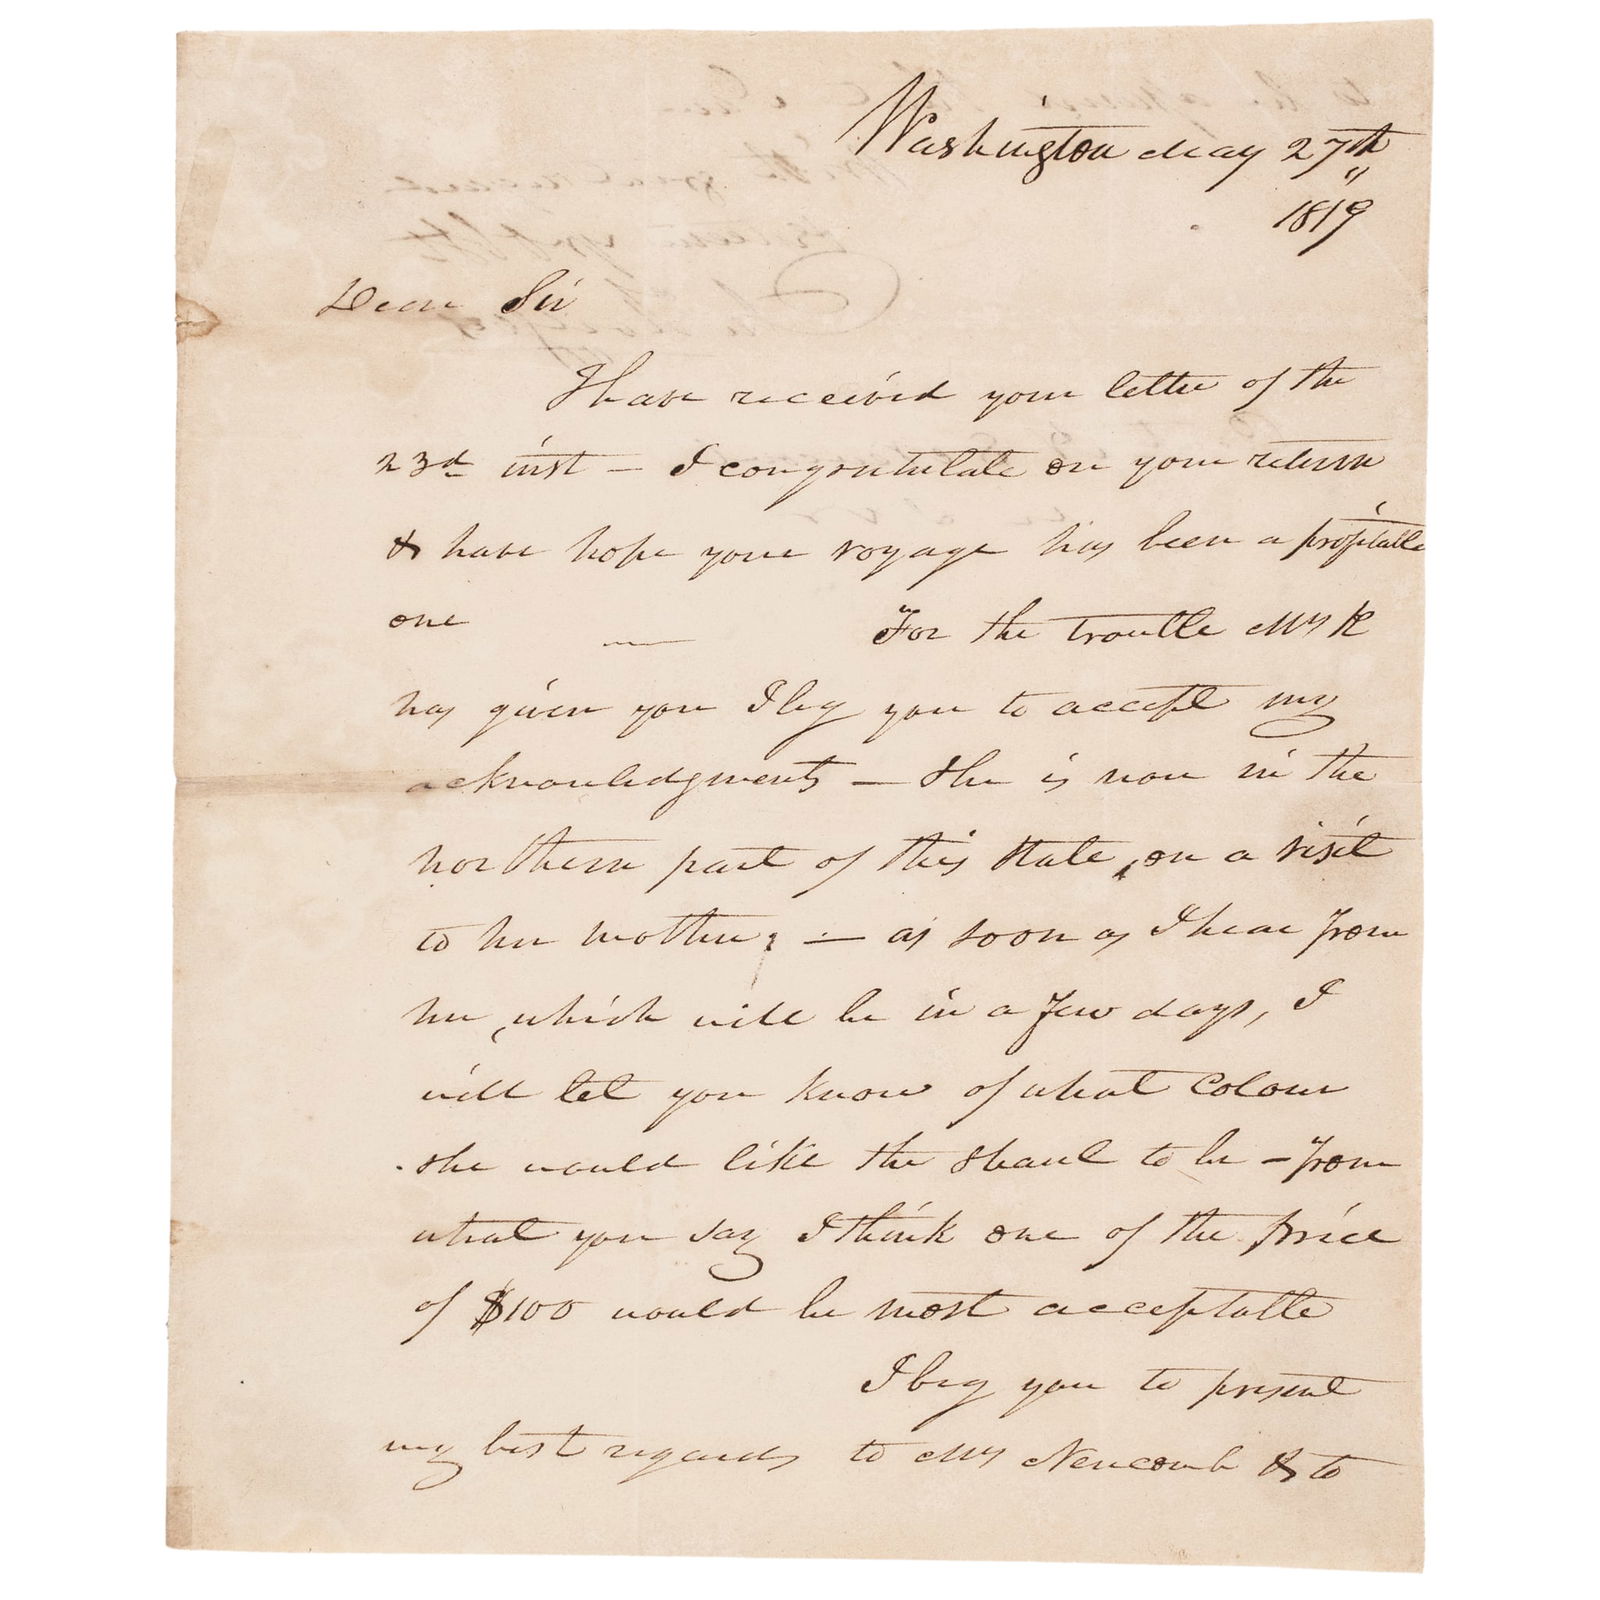 Washington May 27th
1819
Dear Sir
I have received your letter of the
23d inst — I congratulate on your return
& have hope your voyage has been a profitable
one — For the trouble Mrs K
has given you I beg you to accept my
acknowledgments — She is now in the
northern part of this State, on a visit
to her mother; — as soon as I hear from
her, which will be in a few days, I
will let you know of what Colour
she would like the Shawl to be — from
what you say I think one of the price
of $100 would be most acceptable
I beg you to present
my best regards to Mrs Newcomb & to